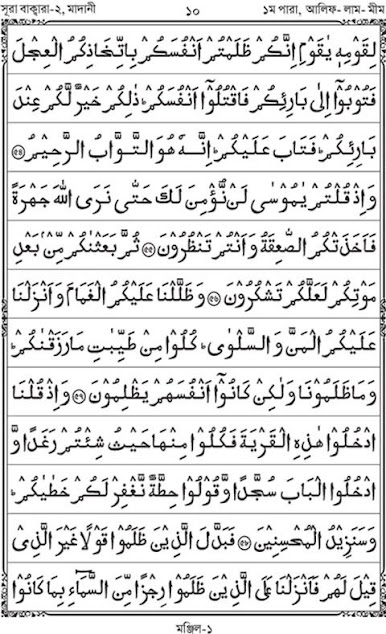 সূরা বাক্বারা-২, মাদানী ১০ ১ম পারা, আলিফ- লাম- মীম
لِقَوْمِهٖ يٰقَوْمِ اِنَّكُمْ ظَلَمْتُمْ اَنْفُسَكُمْ بِاتِّخَاذِكُمُ الْعِجْلَ
فَتُوْبُوْۤا اِلٰى بَارِئِكُمْ فَاقْتُلُوْۤا اَنْفُسَكُمْؕ ذٰلِكُمْ خَيْرٌ لَّكُمْ عِنْدَ
بَارِئِكُمْؕ فَتَابَ عَلَيْكُمْؕ اِنَّهٗ هُوَ التَّوَّابُ الرَّحِيْمُ ﴿۵۴﴾
وَاِذْ قُلْتُمْ يٰمُوْسٰى لَنْ نُّؤْمِنَ لَكَ حَتّٰى نَرَى اللّٰهَ جَهْرَةً
فَاَخَذَتْكُمُ الصّٰعِقَةُ وَاَنْتُمْ تَنْظُرُوْنَ ﴿۵۵﴾ ثُمَّ بَعَثْنٰكُمْ مِّنْۢ بَعْدِ
مَوْتِكُمْ لَعَلَّكُمْ تَشْكُرُوْنَ ﴿۵۶﴾ وَظَلَّلْنَا عَلَيْكُمُ الْغَمَامَ وَاَنْزَلْنَا
عَلَيْكُمُ الْمَنَّ وَالسَّلْوٰىؕ كُلُوْا مِنْ طَيِّبٰتِ مَا رَزَقْنٰكُمْؕ
وَمَا ظَلَمُوْنَا وَلٰكِنْ كَانُوْۤا اَنْفُسَهُمْ يَظْلِمُوْنَ ﴿۵۷﴾ وَاِذْ قُلْنَا
ادْخُلُوْا هٰذِهِ الْقَرْيَةَ فَكُلُوْا مِنْهَا حَيْثُ شِئْتُمْ رَغَدًا وَّ
ادْخُلُوا الْبَابَ سُجَّدًا وَّقُوْلُوْا حِطَّةٌ نَّغْفِرْ لَكُمْ خَطٰيٰكُمْؕ
وَسَنَزِيْدُ الْمُحْسِنِيْنَ ﴿۵۸﴾ فَبَدَّلَ الَّذِيْنَ ظَلَمُوْا قَوْلًا غَيْرَ الَّذِيْ
قِيْلَ لَهُمْ فَاَنْزَلْنَا عَلَى الَّذِيْنَ ظَلَمُوْا رِجْزًا مِّنَ السَّمَآءِ بِمَا كَانُوْا
মঞ্জিল-১